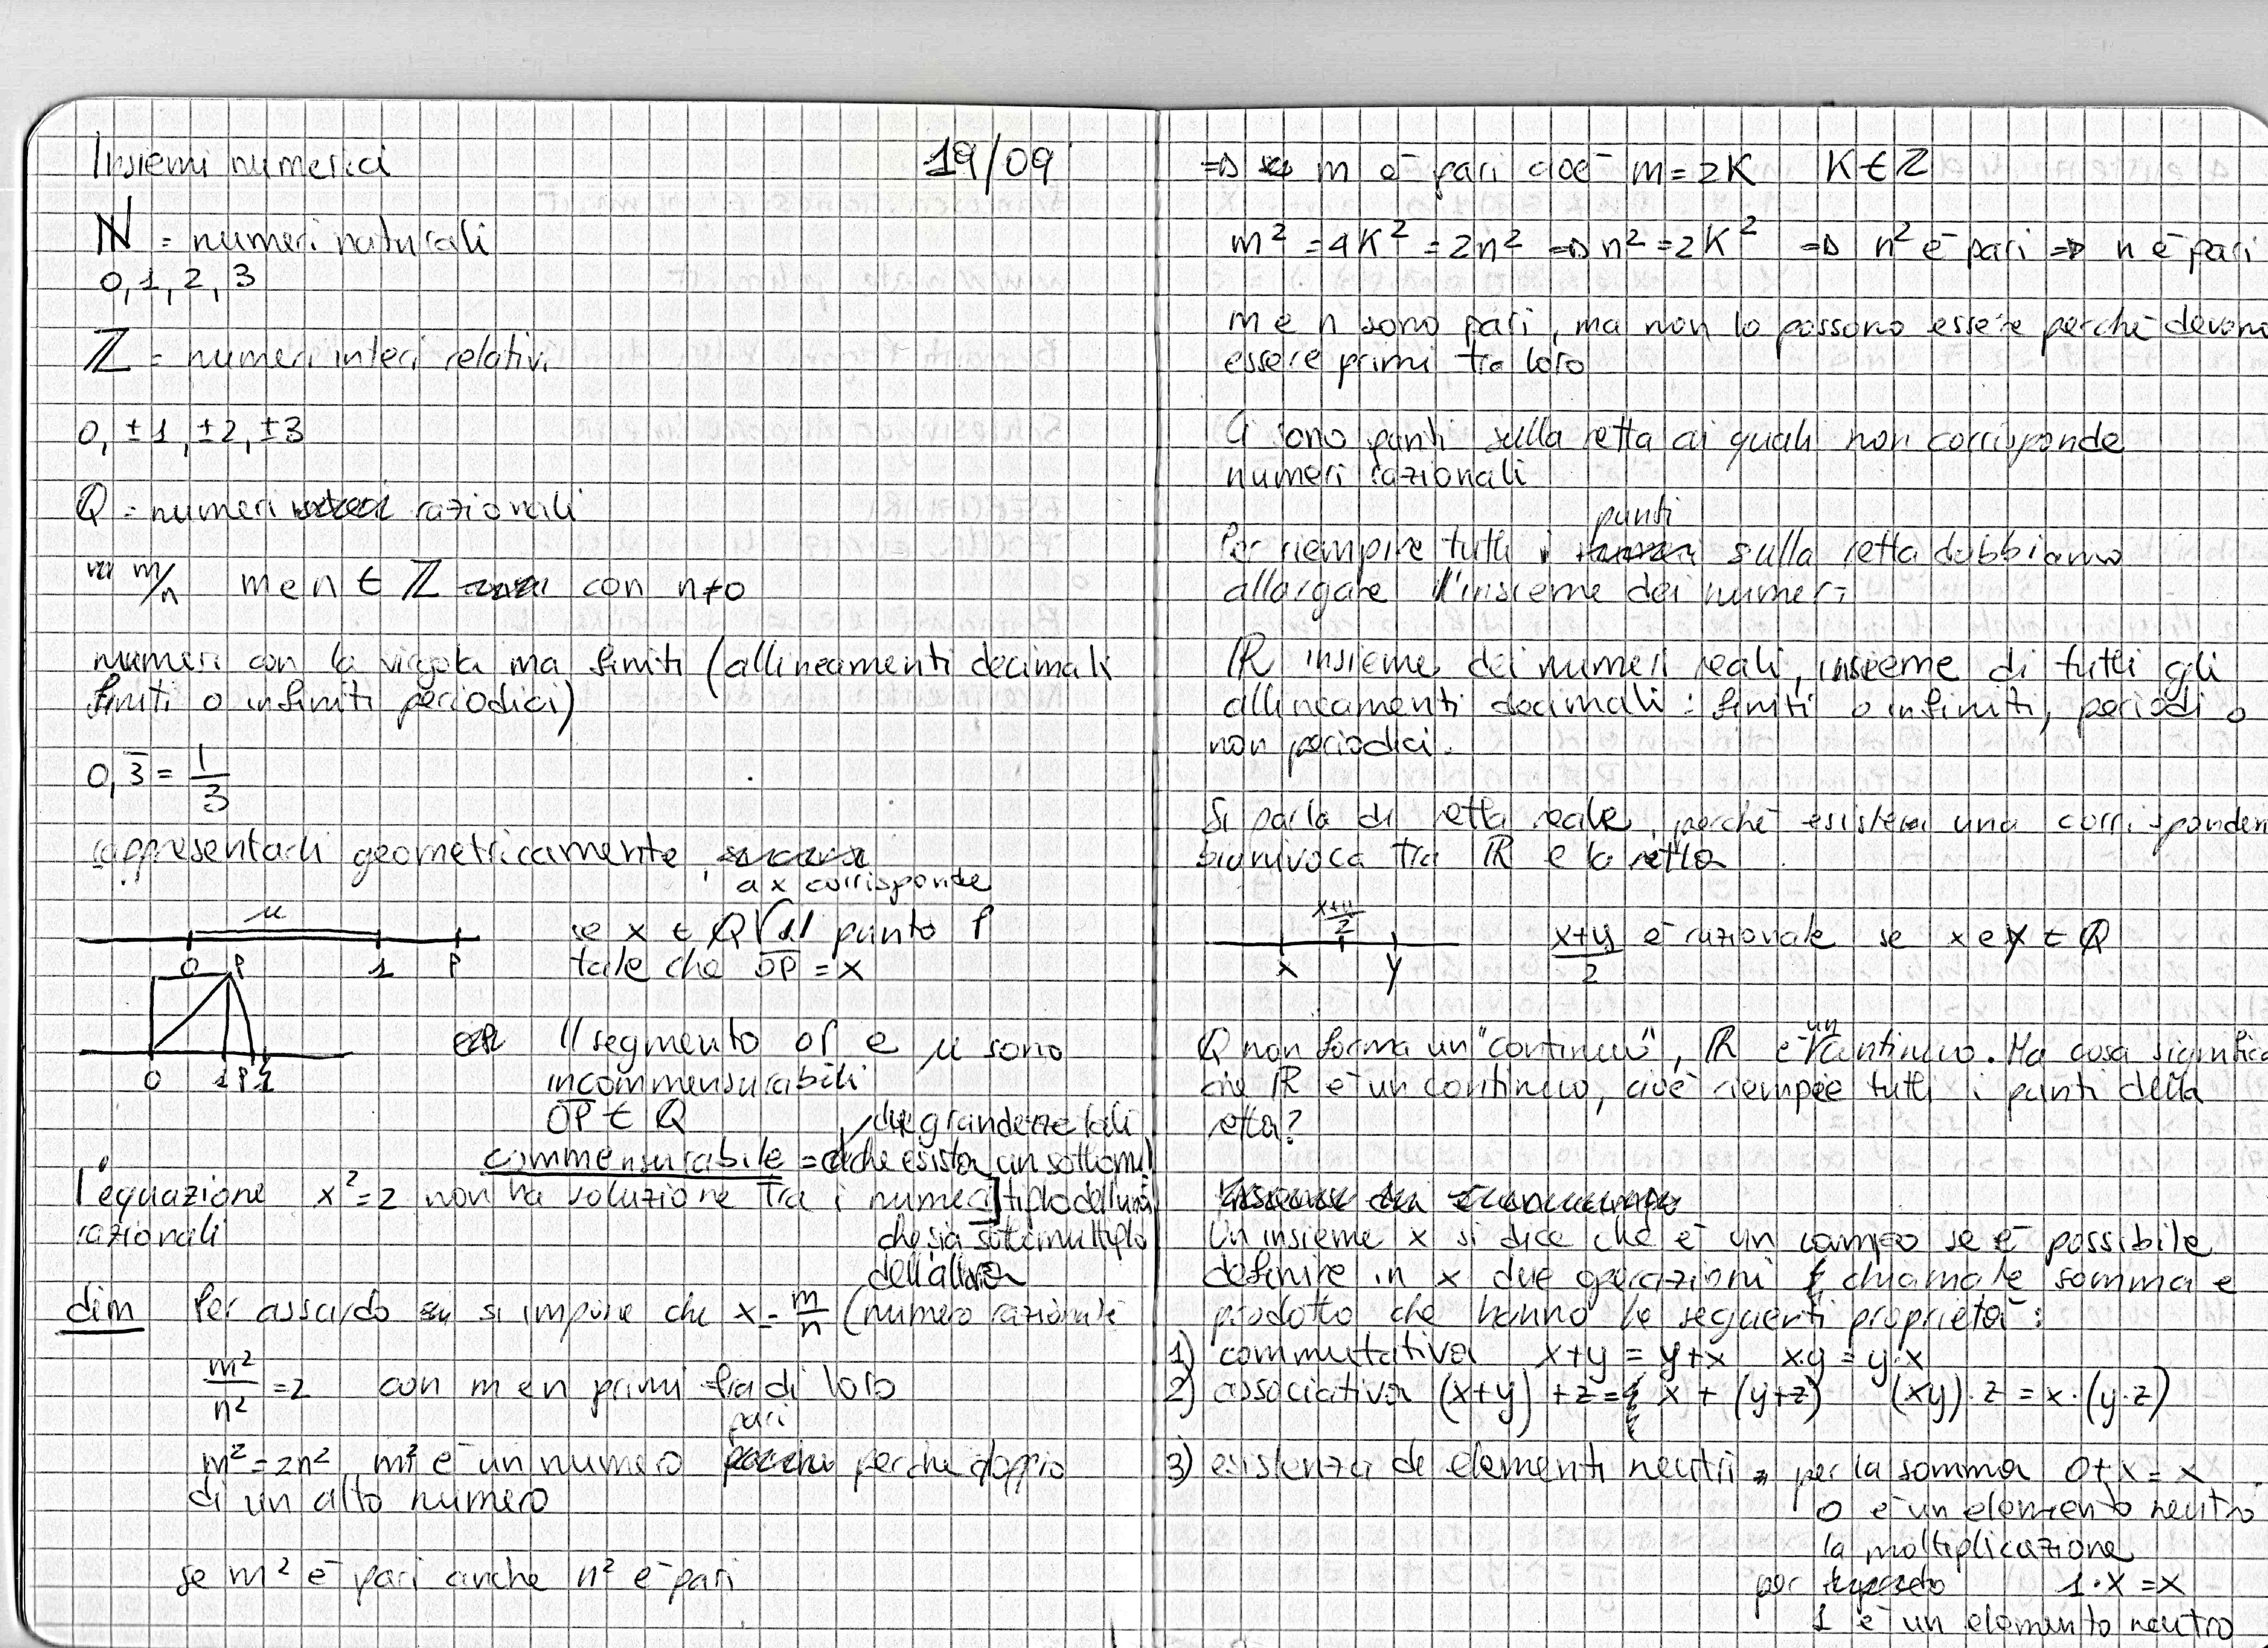 Insiemi numerici 19/09
N = numeri naturali
0,1,2,3
Z = numeri interi relativi
0, ±1, ±2, ±3
Q = numeri razionali
m/n m e n ∈ Z con n≠0
numeri con la virgola ma finiti (allineamenti decimali
finiti o infiniti periodici)
0,3̅ = 1/3
rappresentarli geometricamente
a x corrisponde
u
se x ∈ Q il punto P
0 1 P
tale che O̅P̅ = x
P
0 1 P
Il segmento OP e u sono
incommensurabili
O̅P̅ ∈ Q
due grandezze tali
commensurabile = che esista un sottomul
tiplo dell'una
che sia sottomultiplo
dell'altra
l'equazione x² = 2 non ha soluzione tra i numeri
razionali
dim Per assurdo si impone che x = m/n (numero razionale
m²/n² = 2 con m e n primi fra di loro
m² = 2n² m² è un numero pari perche doppio
di un alto numero
se m² è pari anche n² è pari
⇒ m è pari cioè m = 2K K ∈ Z
m² = 4K² = 2n² ⇒ n² = 2K² ⇒ n² è pari ⇒ n è pari
m e n sono pari, ma non lo possono essere perchè devono
essere primi tra loro
Ci sono punti sulla retta ai quali non corrisponde
numeri razionali
Per riempire tutti i punti sulla retta dobbiamo
allargare l'insieme dei numeri
R insieme dei numeri reali, insieme di tutti gli
allineamenti decimali: finiti o infiniti, periodi o
non periodici.
Si parla di retta reale, perchè esiste una corrisponden
biunivoca tra R e la retta
x+y/2
x y
x+y/2 è razionale se x e y ∈ Q
Q non forma un "continuo", R è un continuo. Ma cosa significa
che R è un continuo, cioè riempie tutti i punti della
retta?
Un insieme x si dice che è un campo se è possibile
definire in x due operazioni chiamate somma e
prodotto che hanno le seguenti proprietà:
1) commutativa x+y = y+x x·y = y·x
2) associativa (x+y)+z = x+(y+z) (xy)·z = x·(y·z)
3) esistenza de elementi neutri per la somma 0+x = x
0 è un elemento neutro
la moltiplicazione
per 1·x = x
1 è un elemento neutro